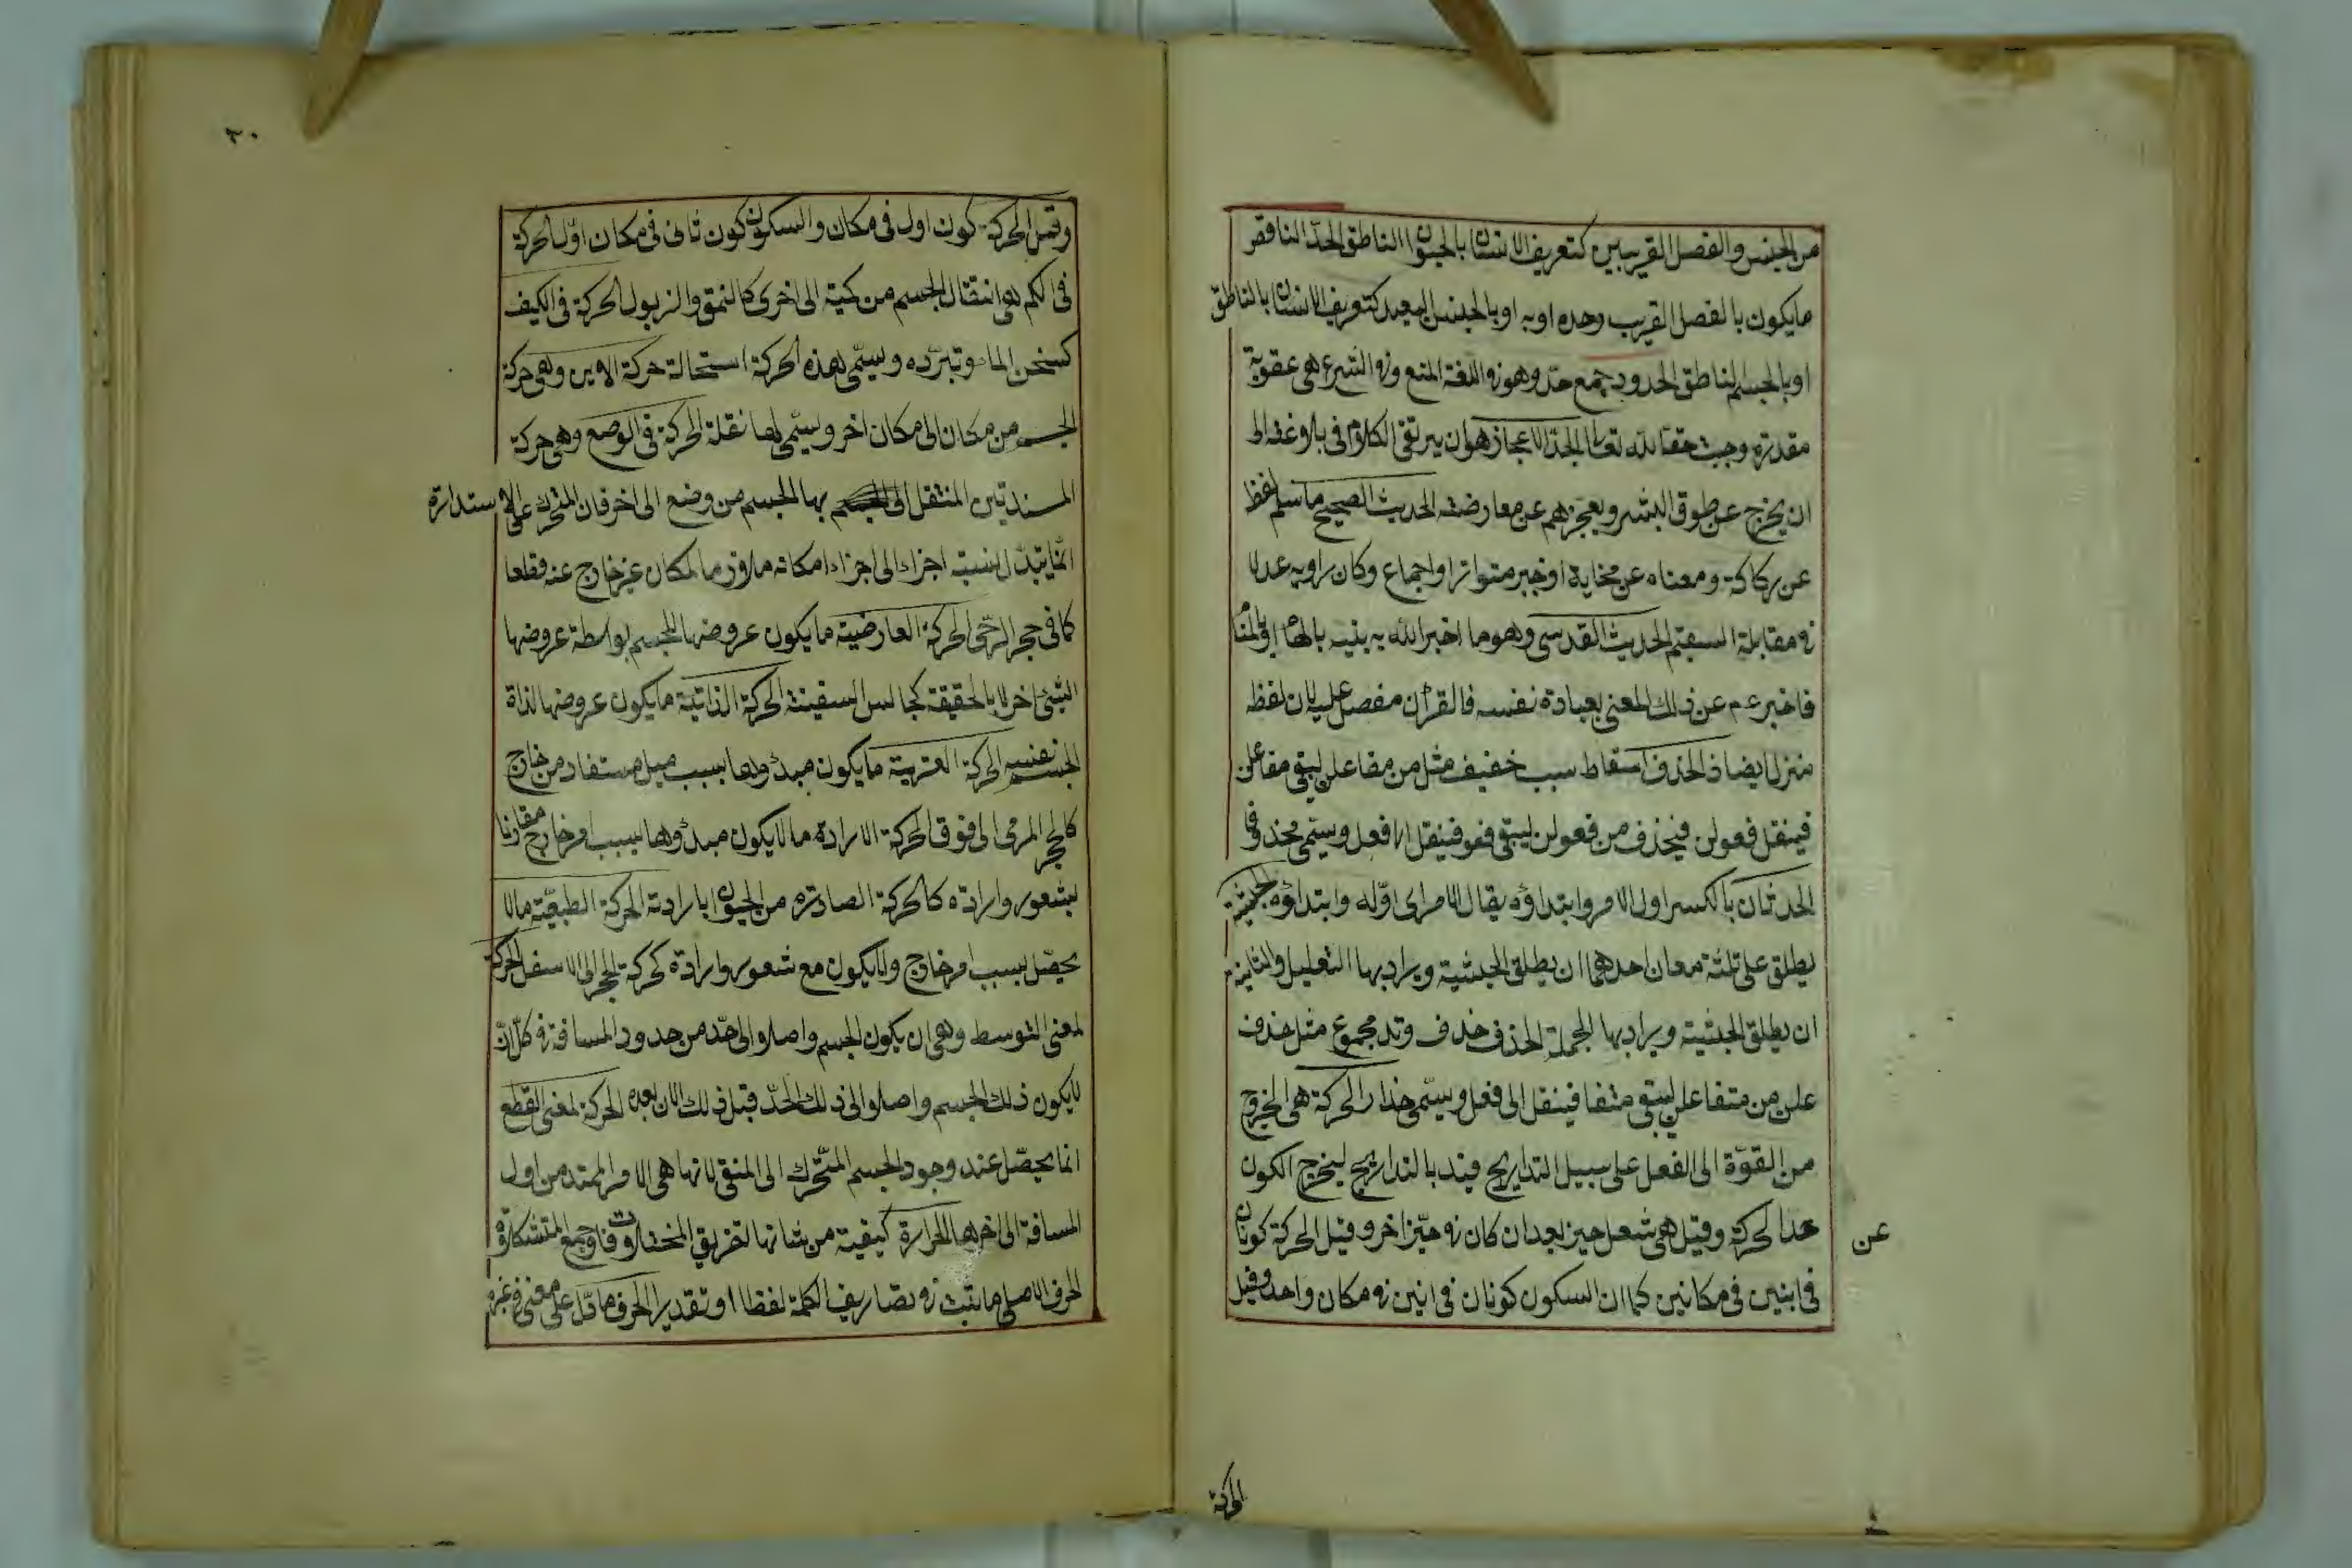 من الجنس والفصل القريبين كتعريف الانسان بالحيوان الناطق الحد الناقص
مايكون بالفصل القريب وحده اوبه اوبالجنس البعيد كتعريف الانسان بالناطق
اوبالجسم الناطق الحدود جمع حد وهو فى اللغة المنع وفى الشرع هى عقوبة
مقدرة وجبت حقا لله تعالى الحد الاعجاز هو ان يرتقى الكلام فى بلاوغته الى
ان يخرج عن طوق البشر ويعجزهم عن معارضته الحديث الصحيح ماسلم لفظه
عن ركاكة ومعناه عن مخاية اوخبر متواتر اواجماع وكان راويه عدلا
فى مقابلة السقيم الحديث القدسى وهو ما اخبر الله به نبيه بالهام اوبالمنام
فاخبر عم عن ذلك المعنى بعبادة نفسه فالقرآن مفصل عليه لان لفظه
منزل ايضا الحذف اسقاط سبب خفيف مثل من مفاعلن ليبقى مفاعلن
فينقل فعولن فيحذف من فعولن ليبقى فعو فينقل الى فعل ويسمى محذوفا
الحدثان بالكسر اول الامر وابتداؤه يقال الامر اى اوله وابتداؤه الحيثية
يطلق على ثلثة معان احدهما ان يطلق الحيثية ويراد بها التعليل والثانية
ان يطلق الحيثية ويراد بها الجملة الحذف حذف وتد مجموع مثل حذف
علن من متفاعلن ليبقى متفا فينقل الى فعل ويسمى حذا الحركة هى الخروج
من القوة الى الفعل على سبيل التدايج قيد بالتداريج ليخرج الكون
عن
حدا لحركة وقيل هى شعل حيز بعد ان كان فى حيز اخر وقيل الحركة كونان
فى انين فى مكانين كما ان السكون كونان فى انين فى مكان واحد وقيل
الحركة
٢٠
وقيل الحركة كون اول فى مكان والسكون كون ثانى فى مكان اول الحركة
فى الكم هى انتقال الجسم من كمية الى اخرى كالنمو والزبول الحركة فى الكيف
كسخن الماء وتبرده ويسمى هذه الحركة استحالة حركة الاين وهى حركة
الجسم من مكان الى مكان اخر ويسمى لها نقلة الحركة فى الوضع وهى حركة
المسنديتين المنتقل الى بها الجسم من وضع الى اخر فان المتحرك على الاستدارة
انما يتبدل نسبة اجزاء الى اجزاء امكانه ملازما لمكان غير خارج عنه قطعا
كما فى حجر الرحى الحركة العارضية مايكون عروضها للجسم بواسطة عروضها
الشئ اخر لا بالحقيقة كجالس السفينة الحركة الذاتية مايكون عروضها لذاة
الجسم نفسه الحركة العترية مايكون مبدؤها بسبب ميل مستفاد من خارج
كالحجر المرمى الى فوق الحركة الارادة مالايكون مبدؤها بسبب امر خارج مقارنا
بشعور وارادة كالحركة الصادرة من الحيوان ابارادته الحركة الطبعية مالا
يحصل بسبب امر خارج ولايكون مع شعور وارادة كحركة الحجر الى الاسفل الحركة
لمعنى التوسط وهى ان يكون الجسم واصلوا الى حد من حدود المسافة فى كل آن
لايكون ذلك الجسم واصلوا الى ذلك الحد قبل ذلك الان بعده الحركة لمعنى القطع
انما يحصل عند وجود الجسم المتحرك الى المنتقى لانها هى الامر الممتد من اول
المسافة الى اخرها الحرارة كيفية من شانها تفريق المختلفات وجمع المتشكلاوة
الحرف الاصلى ما يثبت فى تصاريف الكلمة لفظا او تقديرا الحرف مادل على معنى فى غيره